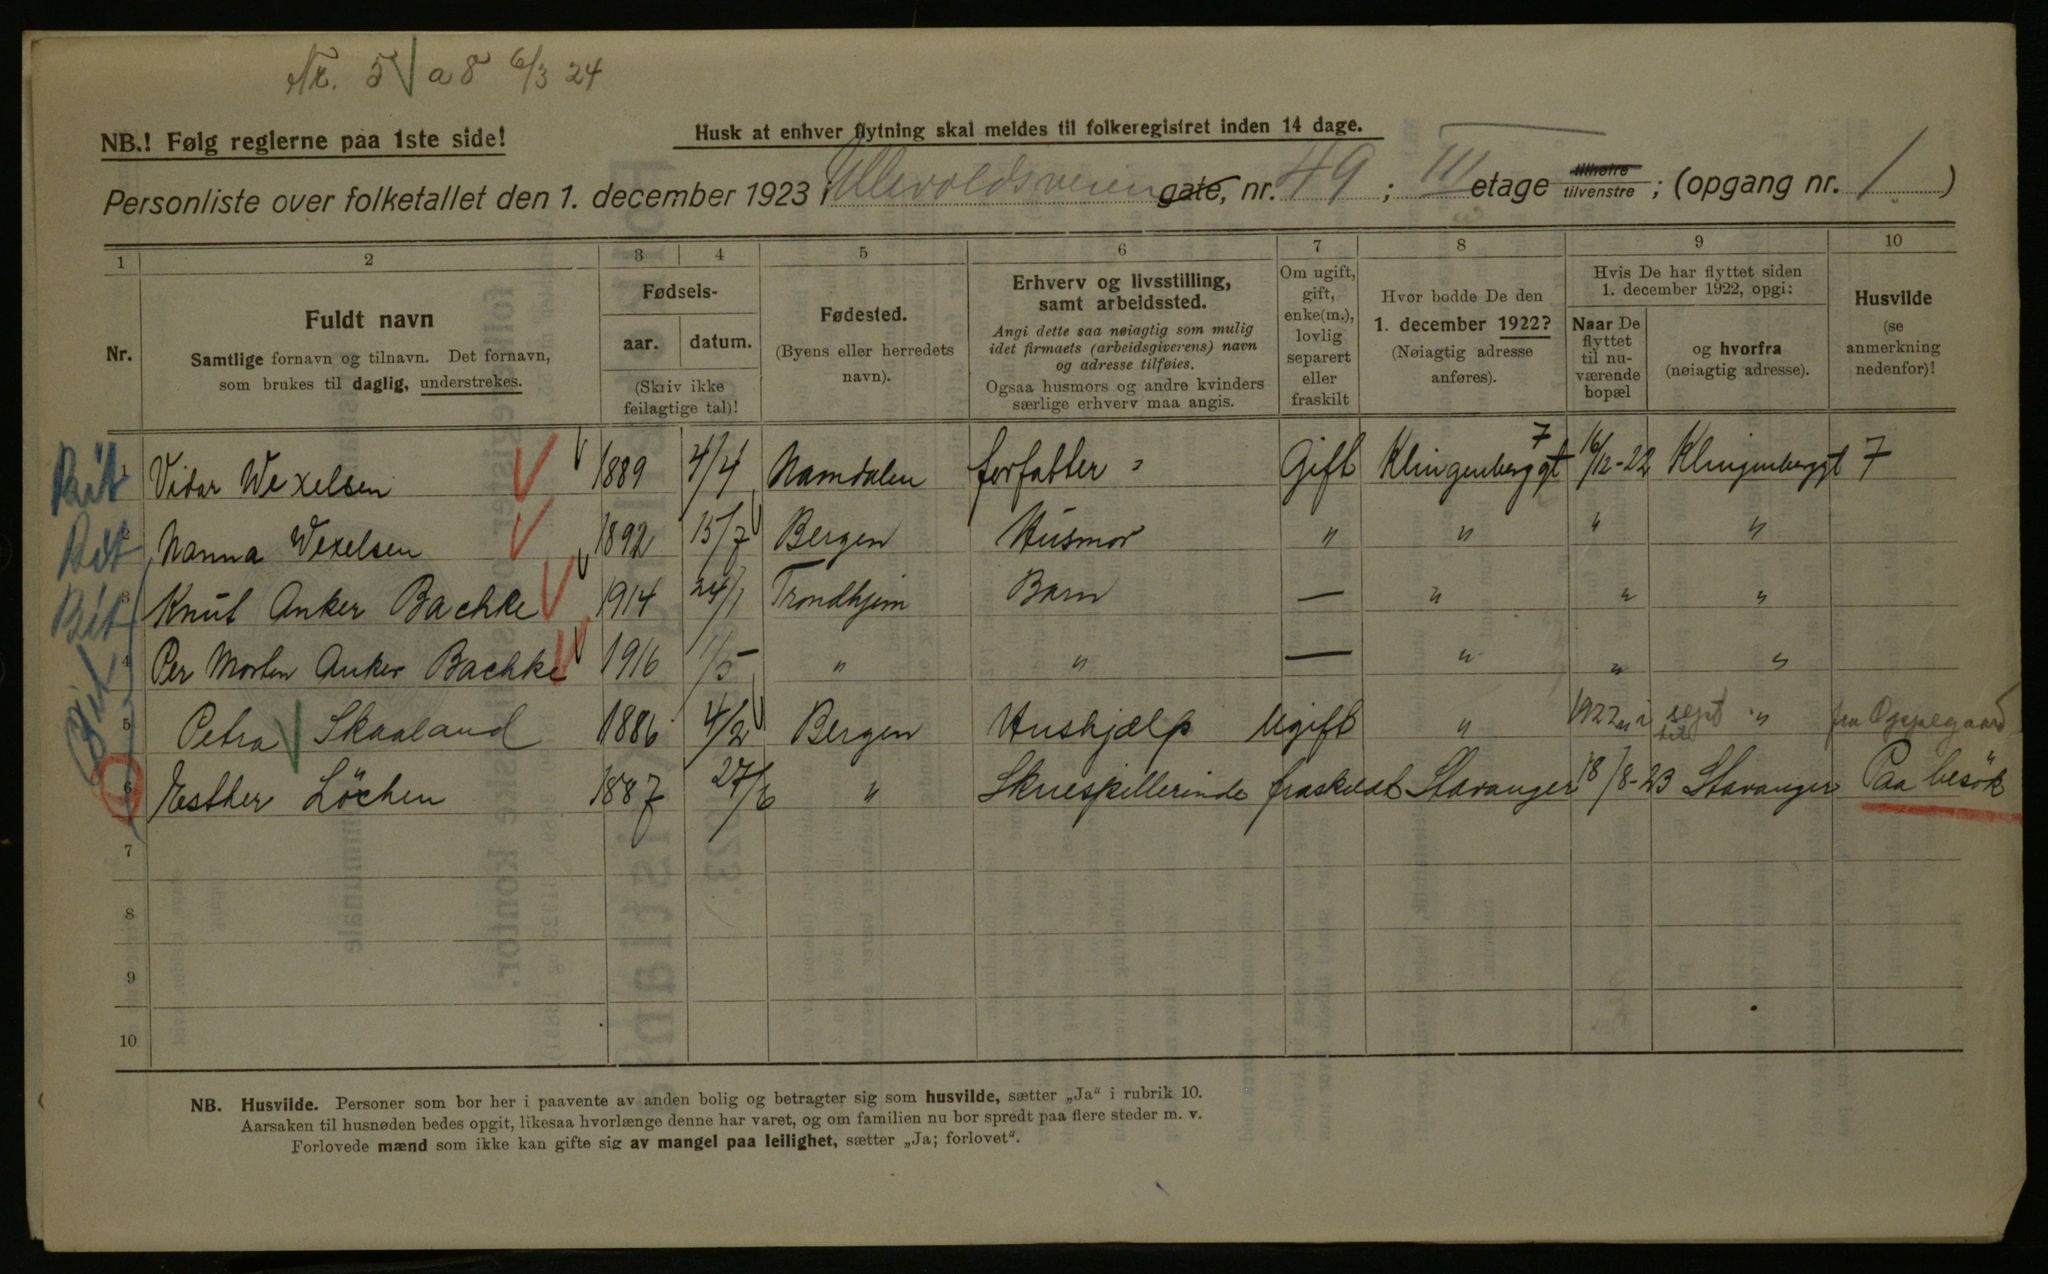 Nr. 5 a 8 6/3 24
NB.! Følg reglerne paa 1ste side!
Husk at enhver flytning skal meldes til folkeregistret inden 14 dage.
Personliste over folketallet den 1. december 1923 i Ullevoldsveien gate, nr. 49; III etage tilhøire tilvenstre; (opgang nr. 1)
1 2 3 4 5 6 7 8 9 10
Nr.
Fuldt navn
Samtlige fornavn og tilnavn. Det fornavn,
som brukes til daglig, understrekes.
Fødsels-
aar. datum.
(Skriv ikke
feilagtige tal)!
Fødested.
(Byens eller herredets
navn).
Erhverv og livsstilling,
samt arbeidssted.
Angi dette saa nøiagtig som mulig
idet firmaets (arbeidsgiverens) navn
og adresse tilføies.
Ogsaa husmors og andre kvinders
særlige erhverv maa angis.
Om ugift,
gift,
enke(m.),
lovlig
separert
eller
fraskilt
Hvor bodde De den
1. december 1922?
(Nøiagtig adresse
anføres).
Hvis De har flyttet siden
1. december 1922, opgi:
Naar De
flyttet
til nu-
værende
bopæl
og hvorfra
(nøiagtig adresse).
Husvilde
(se
anmerkning
nedenfor)!
1 Vidar Wexelsen 1889 4/4 Namdalen forfatter Gift Klingenberggt 7 16/12-22 Klingenberggt 7
2 Nanna Wexelsen 1892 15/7 Bergen Husmor " " " "
3 Knut Anker Bachke 1914 24/1 Trondhjem Barn — " " "
4 Per Morten Anker Bachke 1916 1/5 " " — " " "
5 Petra Skaaland 1886 4/2 Bergen Hushjælp Ugift " 1922 i sept " fra Oppegaard
6 Esther Löchen 1887 27/6 " Skuespillerinde fraskilt Stavanger 18/8-23 Stavanger Paa besök
7
8
9
10
NB. Husvilde. Personer som bor her i paavente av anden bolig og betragter sig som husvilde, sætter „Ja“ i rubrik 10.
Aarsaken til husnøden bedes opgit, likesaa hvorlænge denne har varet, og om familien nu bor spredt paa flere steder m. v.
Forlovede mænd som ikke kan gifte sig av mangel paa leilighet, sætter „Ja; forlovet“.